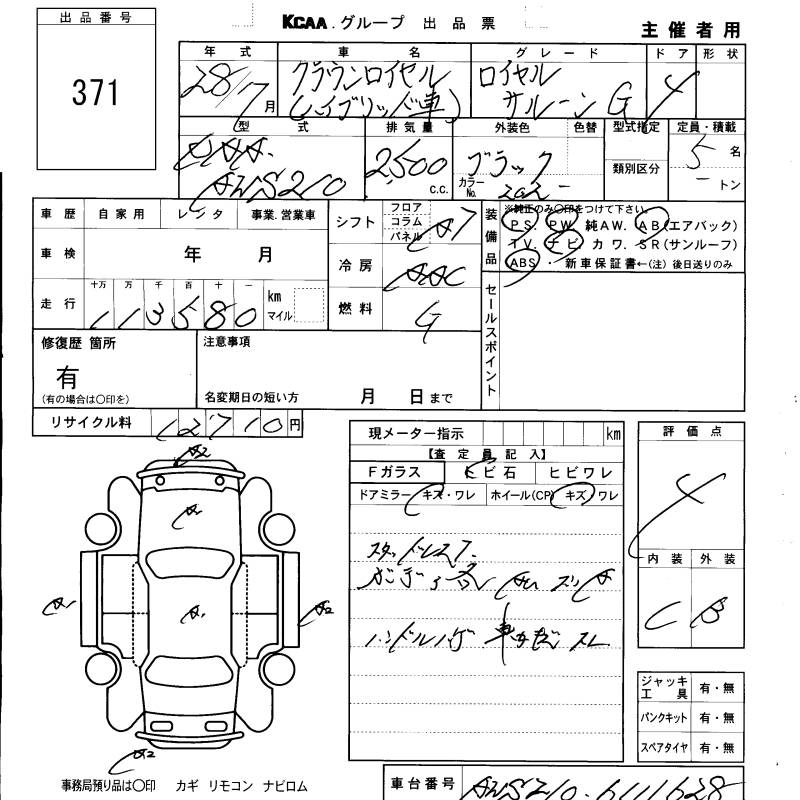 出品番号
371
KCAA.グループ 出品票
主催者用
年式 車名 グレード ドア 形状
28/7月 クラウンロイヤル (ハイブリッド車) ロイヤル サルーン G 4
型式 排気量 外装色 色替 型式指定 定員・積載
類別区分
DAA.
AWS210 2,500 c.c. ブラック カラーNo. 202 - 5 名
- トン
車歴 自家用 レンタ 事業.営業車
車検 年 月
走行 十万 万 千 百 十 一 km マイル
113580
シフト フロア コラム パネル A7
冷房 AAC
燃料 G
装備品
※純正のみ〇印をつけて下さい。
PS. PW. 純AW. AB(エアバック)
TV. ナビ カワ. SR(サンルーフ)
ABS・新車保証書←(注)後日送りのみ
セールスポイント
修復歴 箇所
有
(有の場合は〇印を)
注意事項
名変期日の短い方 月 日まで
リサイクル料 12710円
現メーター指示 km
【査定員記入】
Fガラス ヒビ石 ヒビワレ
ドアミラー キズ・ワレ ホイール(CP) キズ/ワレ
スタッドレス7.
ハンドルハゲ
スレ
評価点
4
内装 外装
C B
A2
A1
A1
A1
A2
A2
ジャッキ工具 有・無
パンクキット 有・無
スペアタイヤ 有・無
事務局預り品は〇印 カギ リモコン ナビロム
車台番号 AWS210-6111628